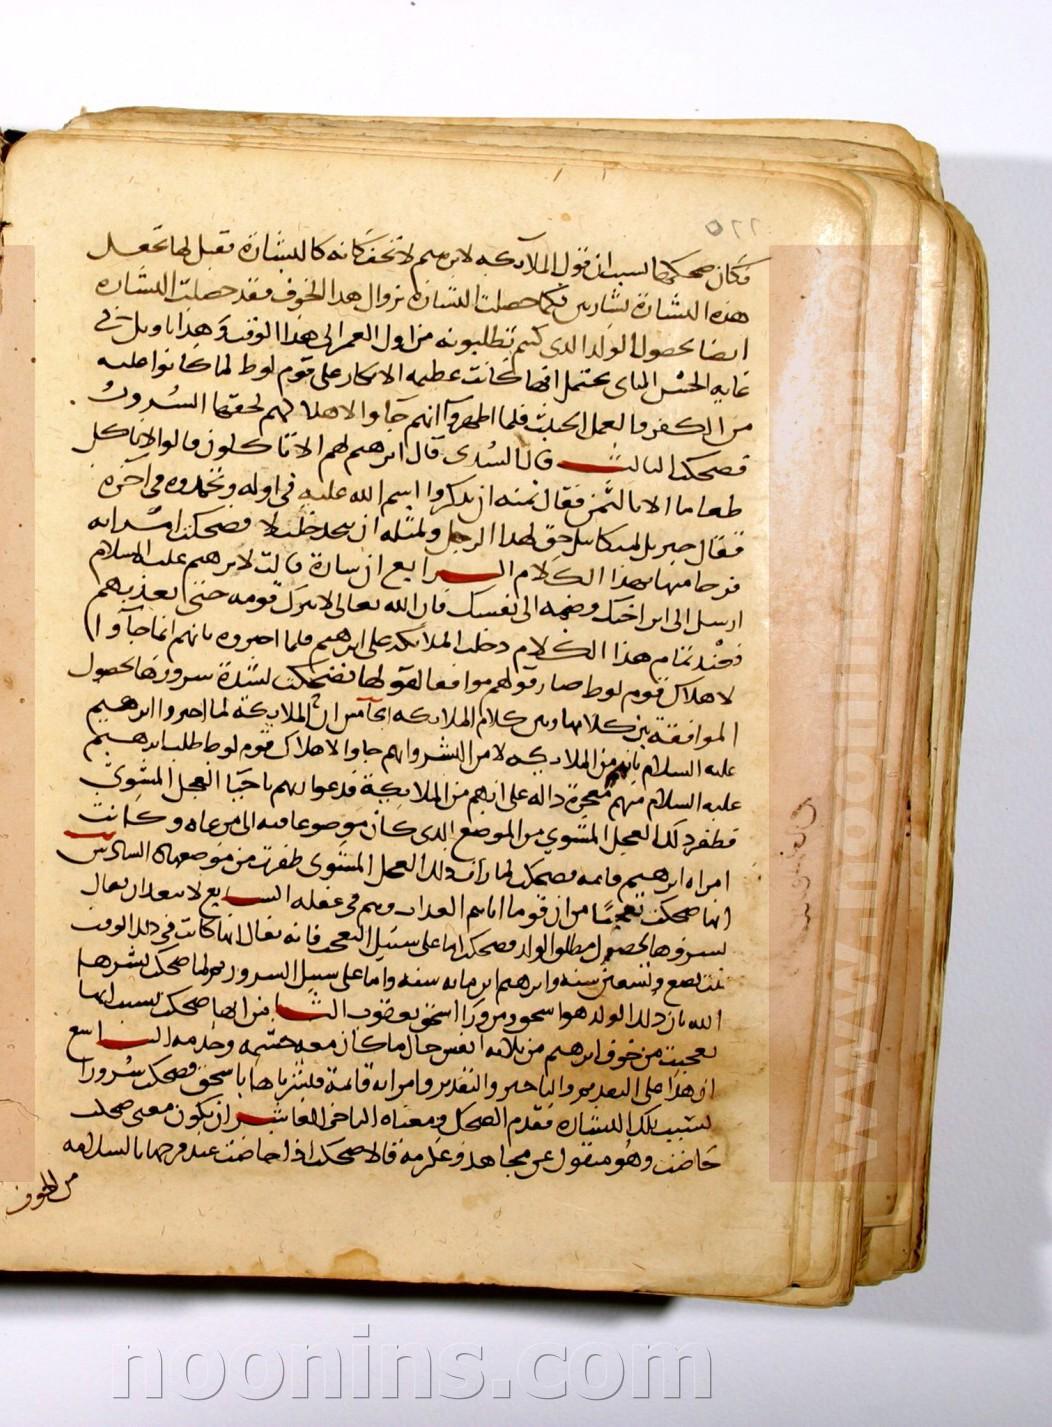 ٥٢٢
فكان ضحكها بسبب ان قول الملائكة لابرهيم لا تخف كانه كالبشارة فقيل لها نجعل
هذه البشارة بشارتين فكما حصلت البشارة بزوال هذا الخوف فقد حصلت البشارة
ايضا بحصول الولد الذى كنتم تطلبونه من اول العمر الى هذا الوقت وهذا تاويل فى
غاية الحسن الثانى يحتمل انها كانت عظيمة الانكار على قوم لوط لما كانوا عليه
من الكفر والعمل الخبيث فلما اظهروا انهم جاؤا لاهلاكهم لحقها السرور
فضحكت الثالث قال السدى قال ابرهيم لهم الا تاكلون قالوا لا ناكل
طعاما الا بالثمن فقال ثمنه ان تذكروا اسم الله عليه فى اوله وتحمدوه فى اخره
فقال جبريل لميكائيل حق لهذا الرجل ولمثله ان يتخذ خليلا فضحكت امراته
فرحا منها بهذا الكلام الرابع ان سارة قالت لابرهيم عليه السلام
ارسل الى ابن اخيك وضمه الى نفسك فان الله تعالى لا يترك قومه حتى يعذبهم
فعند تمام هذا الكلام دخلت الملائكة على ابرهيم فلما اخبروه بانهم انما جاؤا
لاهلاك قوم لوط صار قولهم موافقا لقولها فضحكت لشدة سرورها بحصول
الموافقة بين كلامها وبين كلام الملائكة الخامس ان الملائكة لما اخبروا ابرهيم
عليه السلام بانهم من الملائكة لا من البشر وانهم جاؤا لاهلاك قوم لوط طلب ابرهيم
عليه السلام منهم معجزة دالة على انهم من الملائكة فدعوا ربهم باحيا العجل المشوى
فطفر ذلك العجل المشوي من الموضع الذى كان موضوعا فيه الى مرعاه وكانت
امراة ابرهيم قائمة فضحكت لما رات ذلك العجل المشوى طفرت من موضعها السادس
انها ضحكت تعجبًا من ان قوما اتاهم العذاب وهم فى غفلة السابع لا يبعد ان يقال
بشروها بحصول مطلق الولد فضحكت اما على سبيل التعجب فانه يقال انها كانت فى ذلك الوقت
بنت بضع وتسعين سنه وابرهيم ابن مائه سنه واما على سبيل السرور ثم لما ضحكت بشرها
الله بان ذلك الولد هو اسحق ومن ورآ اسحق يعقوب الثامن انها ضحكت بسبب انها
تعجبت من خوف ابرهيم من ثلاثه انفس حال ما كان معه حشمه وخدمه التاسع
ان هذا على التقديم والتاخير والتقدير وامراته قائمة فبشرناها باسحق فضحكت سُرورا
بسبب تلك البشارة فقدم الضحك ومعناه التاخير العاشر ان يكون معنى ضحكت
حاضت وهو منقول عن مجاهد وعكرمة قالا ضحكت اذا حاضت عند فرحها بالسلامه
من الخوف
noonins.com
www.noonins.com